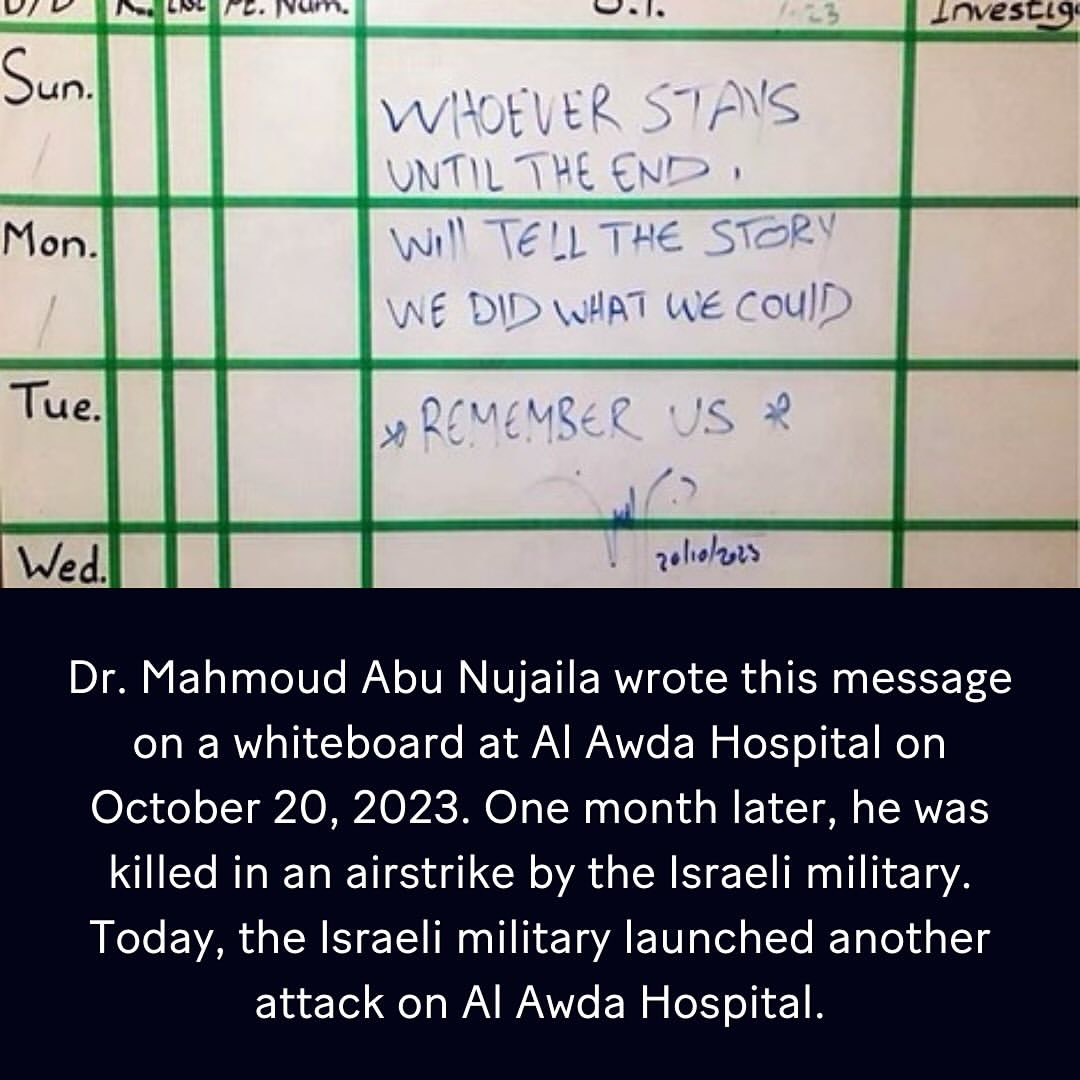 Pt. Num.
Investig
Sun.
WHOEVER STAYS
UNTIL THE END.
Mon.
Will TELL THE STORY
WE DID WHAT WE COULD
Tue.
*REMEMBER US *
20/10/2023
Wed.
Dr. Mahmoud Abu Nujaila wrote this message
on a whiteboard at Al Awda Hospital on
October 20, 2023. One month later, he was
killed in an airstrike by the Israeli military.
Today, the Israeli military launched another
attack on Al Awda Hospital.